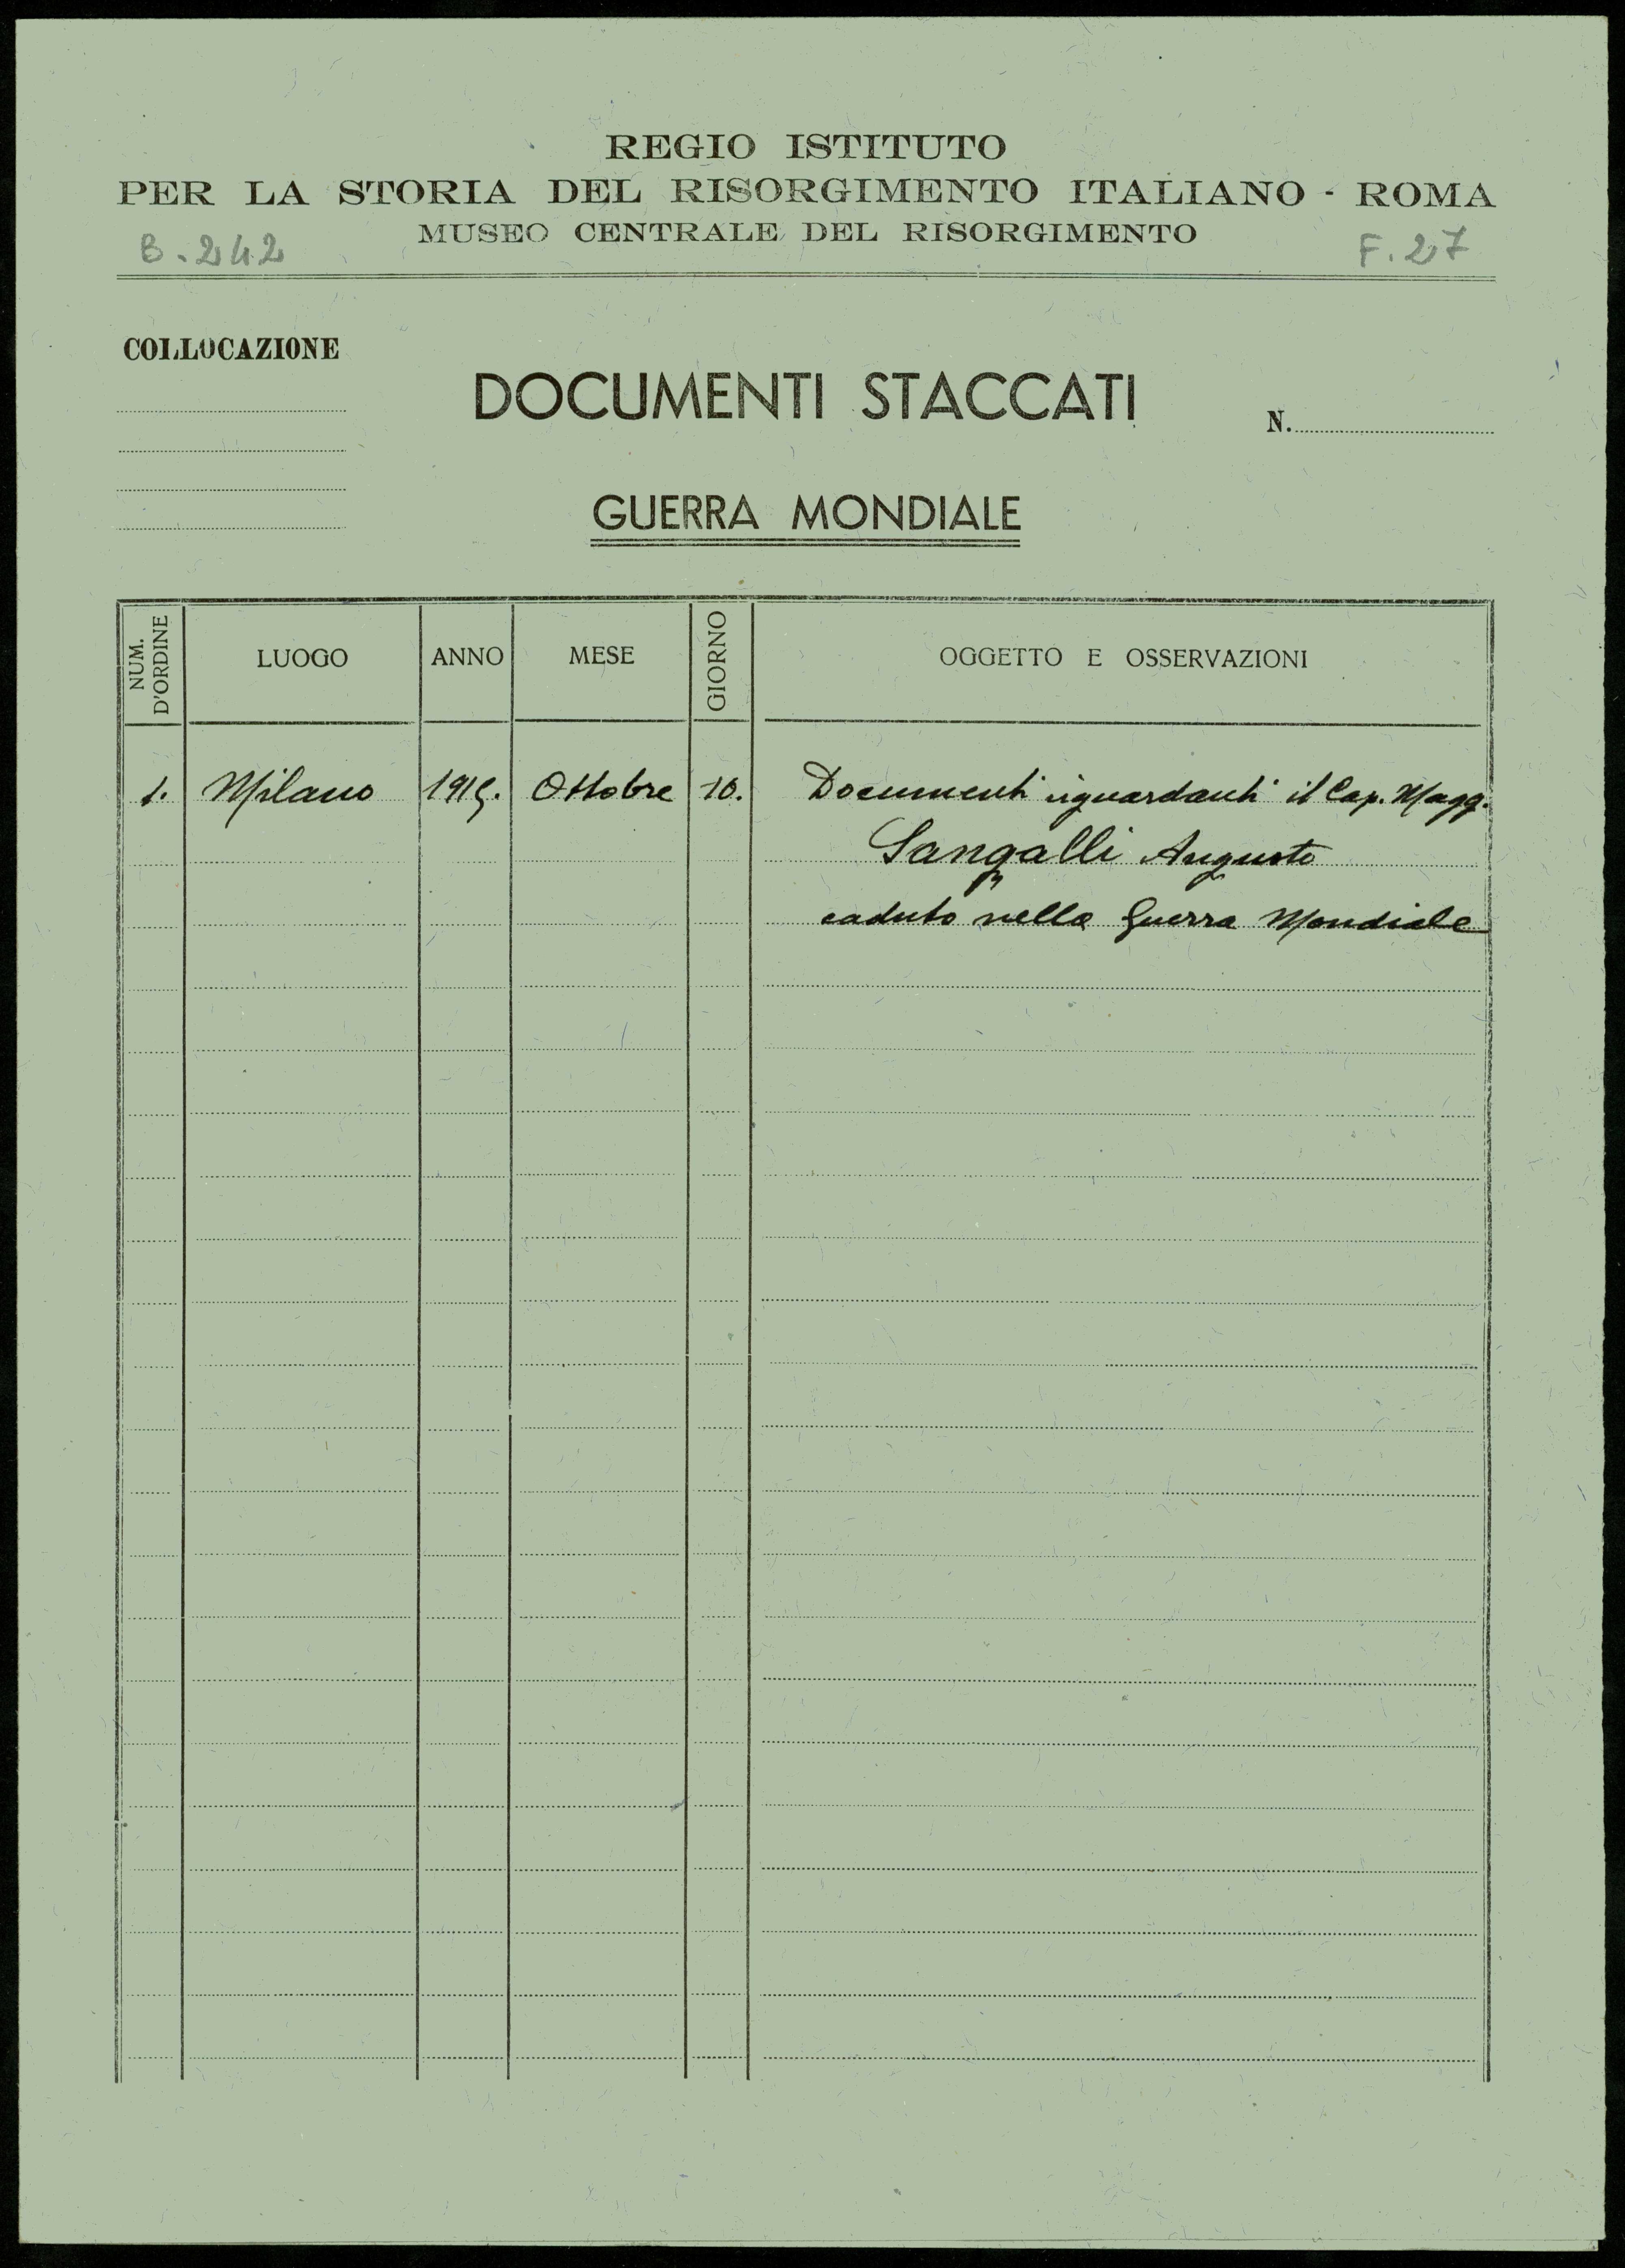 REGIO ISTITUTO
PER LA STORIA DEL RISORGIMENTO ITALIANO - ROMA
MUSEO CENTRALE DEL RISORGIMENTO
B. 242
F. 27
COLLOCAZIONE
DOCUMENTI STACCATI
N.
GUERRA MONDIALE
NUM. D'ORDINE LUOGO ANNO MESE GIORNO OGGETTO E OSSERVAZIONI
1. Milano Ottobre 10. Documenti riguardanti il Cap. Magg.
Sangalli Augusto
caduto nella Guerra Mondiale